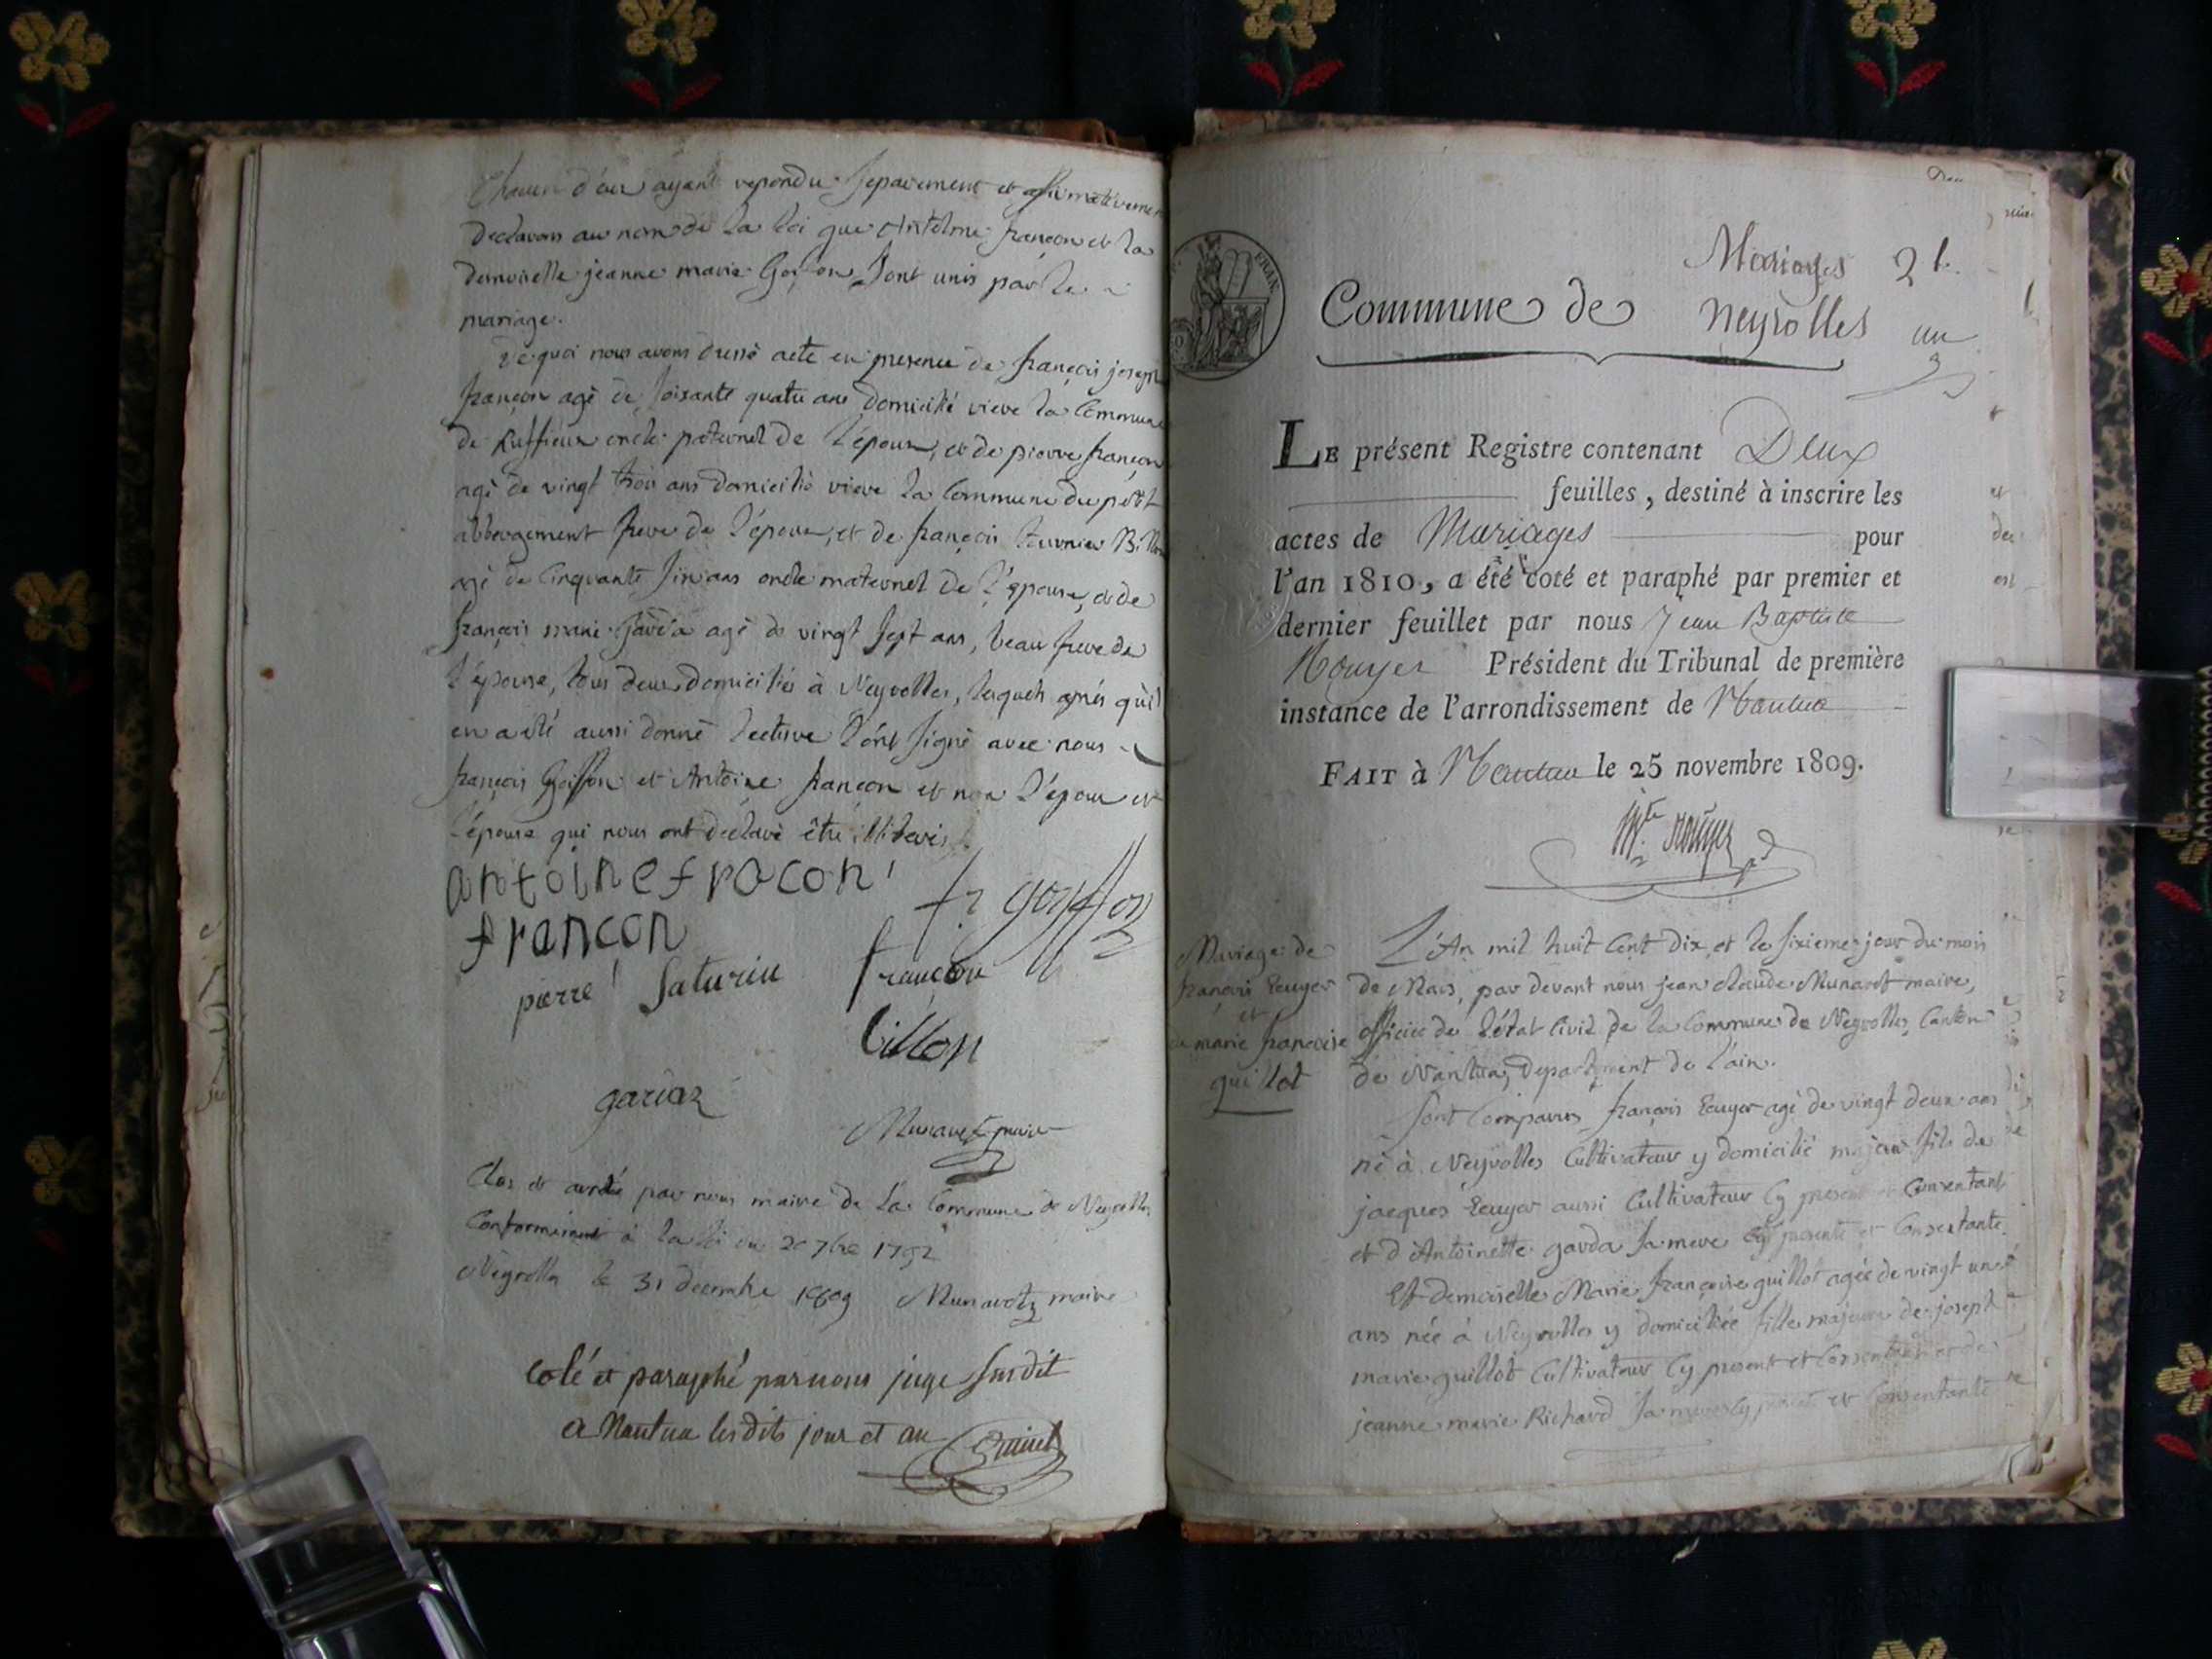 Chacun d'eux ayant repondu separement et affirmativement
declarons au nom de la loi que Antelme françon et la
demoiselle jeanne marie Goiffon sont unis par le
mariage.
de quoi nous avons dressé acte en presence de françois joseph
françon agé de soixante quatre ans domicilié rière la Commune
de Ruffieux oncle paternel de l'époux, et de pierre françon
agé de vingt trois ans domicilié rière la Commune du petit
abbergement frere de l'époux, et de françois tournier Billon
agé de Cinquante six ans oncle maternel de l'épouse, et de
françois marie garda agé de vingt sept ans, beau frere de
l'épouse, tous deux domiciliés à Neyrolles, lesquels après qu'il
en a été aussi donné lecture l'ont signé avec nous
françois Goiffon et Antoine françon et non l'époux et
l'épouse qui nous ont déclaré être illiterés.
antoine fracon
francon
fs goiffon
pierre saturin francon
billon
gariaz
Munaret maire
Clos et arrêté par nous maire de la Commune de Neyrolles
Conformément à la loi du 20 7bre 1792
Neyrolles le 31 decembre 1809 Munaret maire
Coté et paraphé par nous juge susdit
a Nantua lesdits jour et an
Mariages 2 f.
Commune de Neyrolles un
FRAN.
LE présent Registre contenant Deux
feuilles, destiné à inscrire les
actes de Mariages pour
l'an 1810, a été coté et paraphé par premier et
dernier feuillet par nous Jean Baptiste
Rouyer Président du Tribunal de première
instance de l'arrondissement de Nantua
FAIT à Nantua le 25 novembre 1809.
Rouyer
Mariage de
françois Ecuyer
et
de marie françoise
guillot
L'An mil huit Cent Dix et le sixieme jour du mois
de Mars, par devant nous jean claude Munaret maire,
officier de l'état Civil de la Commune de Neyrolles, Canton
de Nantua, Departement de l'ain.
sont Comparus françois Ecuyer agé de vingt deux ans
né à Neyrolles Cultivateur y domicilié majeur fils de
jacques Ecuyer aussi Cultivateur Cy present et Consentant
et d'Antoinette garda sa mere Cy presente et Consentante.
Et demoiselle Marie françoise guillot agée de vingt un
ans née à Neyrolles y domiciliée fille majeure de joseph
marie guillot Cultivateur Cy present et Consentant et de
jeanne marie Richard sa mere Cy presente et Consentante